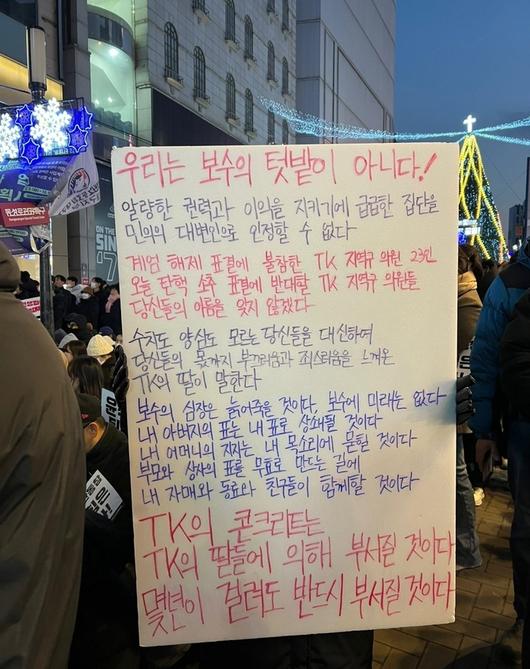 우리는 보수의 텃밭이 아니다!
알량한 권력과 이익을 지키기에 급급한 집단을
민의의 대변인으로 인정할 수 없다
계엄 해제 표결에 불참한 TK 지역구 의원 23인
오늘 탄핵 소추 표결에 반대할 TK 지역구 의원들
당신들의 이름을 잊지 않겠다
수치도 양심도 모르는 당신들을 대신하여
당신들의 몫까지 부끄러움과 죄스러움을 느껴온
TK의 딸이 말한다
보수의 심장은 늙어죽을 것이다, 보수에 미래는 없다
내 아버지의 표는 내 표로 상쇄될 것이다
내 어머니의 지지는 내 목소리에 묻힐 것이다
부모와 상사의 표를 무표로 만드는 길에
내 자매와 동료와 친구들이 함께할 것이다
TK의 콘크리트는
TK의 딸들에 의해 부서질 것이다
몇년이 걸려도 반드시 부서질 것이다
ON THE
SIN
'7